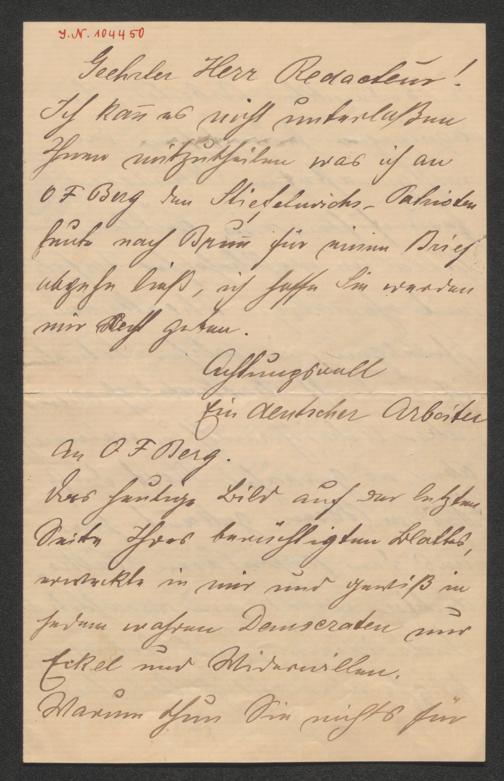 J. N. 104450
Geehrter Herr Redacteur!
Ich kan̄ es nicht unterlaßen
Ihnen mitzutheilen was ich an
O F Berg den Stiefelwichs-Patrioten
heute nach Brün̄ für einen Brief
abgehn ließ, ich hoffe Sie werden
mir Recht geben.
Achtungsvoll
Ein deutscher Arbeiter
An O F Berg.
Das heutige Bild auf der letzten
Seite Ihres berüchtigten Blatts,
erweckte in mir und gewiß in
jedem wahren Democraten nur
Eckel und Widerwillen.
Warum thun Sie nichts für